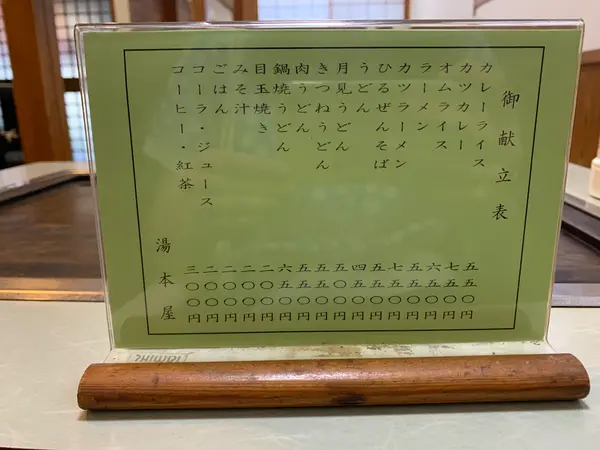 御献立表
カレーライス 五五〇円
カツカレー 七五〇円
オムライス 六五〇円
ラーメン 五五〇円
カツラーメン 七五〇円
ひるぜんそば 五五〇円
うどん 四五〇円
月見うどん 五〇〇円
きつねうどん 五五〇円
肉うどん 五五〇円
鍋焼うどん 六五〇円
目玉焼き 二〇〇円
みそ汁 二〇〇円
ごはん 二〇〇円
コーラ・ジュース 二〇〇円
コーヒー・紅茶 三〇〇円
湯本屋